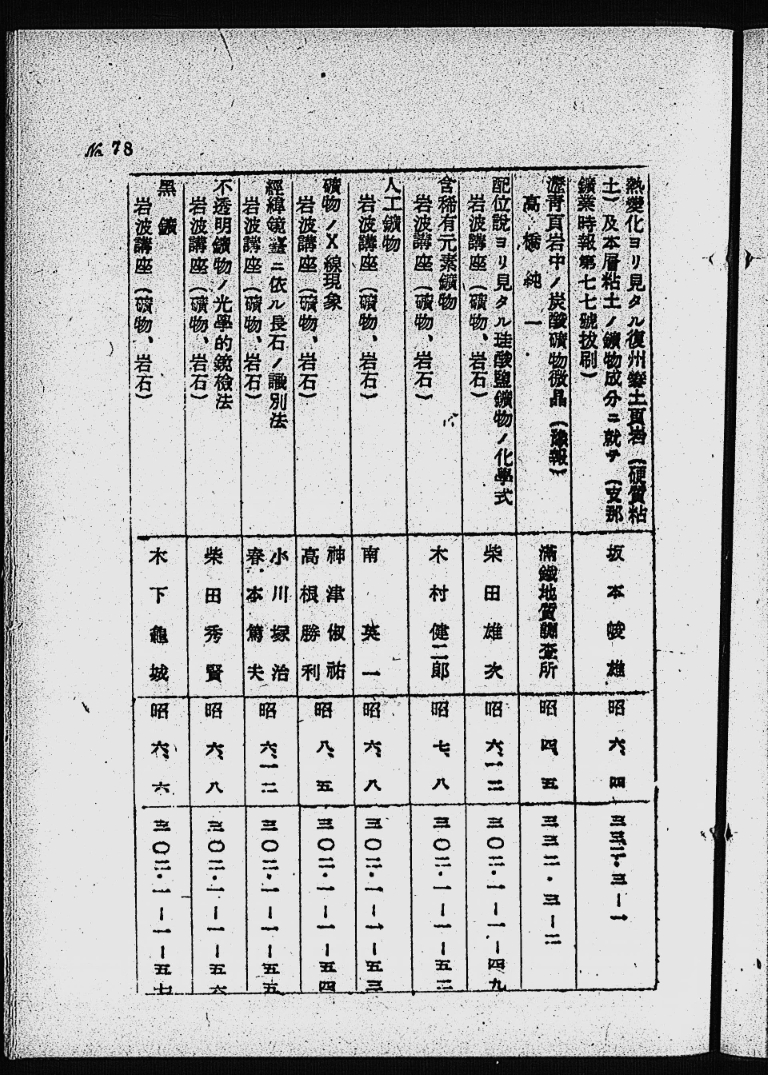 No. 78
熱變化ヨリ見タル復州礬土頁岩(硬質粘
土)及本層粘土ノ鑛物成分ニ就テ(支那
鑛業時報第七七號拔刷)
坂本峻雄
昭六、四
三三二・三―一
瀝靑頁岩中ノ炭酸礦物微晶(豫報)
高橋純一
滿鐵地質調查所
昭四、五
三三二・三―二
配位說ヨリ見タル珪酸鹽鑛物ノ化學式
岩波講座(礦物、岩石)
柴田雄次
昭六、一二
三〇二・一―一―四九
含稀有元素鑛物
岩波講座(礦物、岩石)
木村健二郎
昭七、八
三〇二・一―一―五二
人工鑛物
岩波講座(礦物、岩石)
南英一
昭六、八
三〇二・一―一―五三
礦物ノX線現象
岩波講座(礦物、岩石)
神津俶祐
高根勝利
昭八、五
三〇二・一―一―五四
經緯鏡臺ニ依ル長石ノ識別法
岩波講座(礦物、岩石)
小川塚治
春本篤夫
昭六、一二
三〇二・一―一―五五
不透明鑛物ノ光學的鏡檢法
岩波講座(礦物、岩石)
柴田秀賢
昭六、八
三〇二・一―一―五六
黑鑛
岩波講座(礦物、岩石)
木下龜城
昭六、六
三〇二・一―一―五七